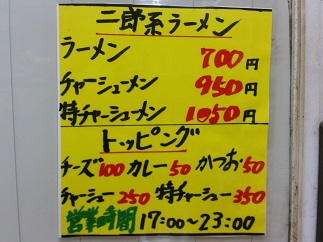 二郎系ラーメン
ラーメン 700円
チャーシューメン 950円
特チャーシューメン 1050円
トッピング
チーズ100 カレー50 かつお50
チャーシュー250 特チャーシュー350
営業時間 17:00~23:00